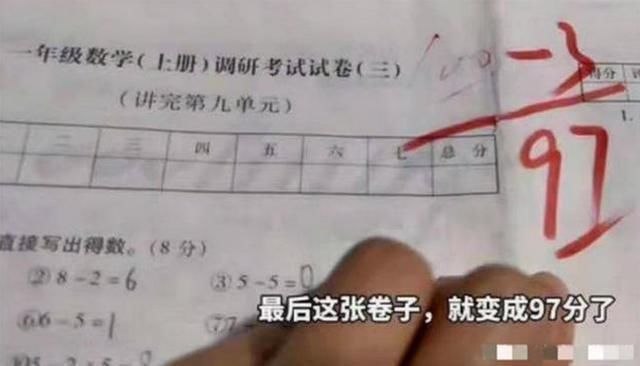 一年级数学(上册)调研考试试卷(三)
100-3
97
得分
(讲完第九单元)
1.
二 三 四 五 六 七 总分
直接写出得数。(8分)
②8-2=6 ③5-5=0
⑥6-5=1 ⑦7
最后这张卷子，就变成97分了